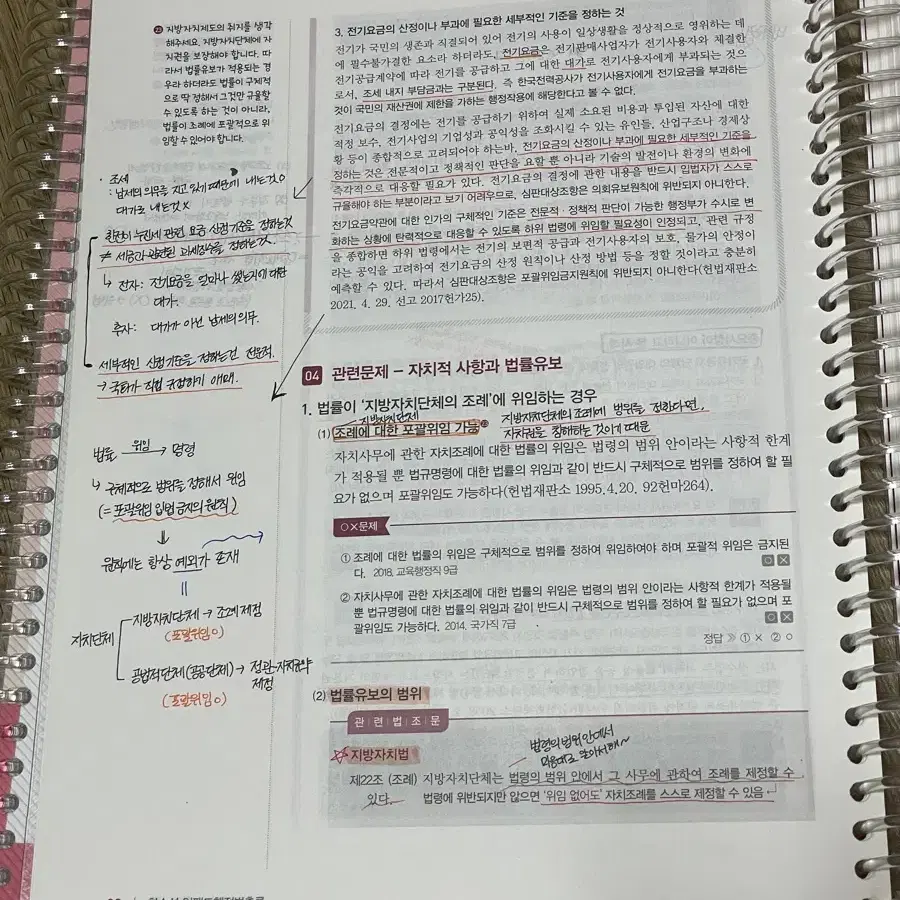 ㉓ 지방자치제도의 취지를 생각
해주세요. 지방자치단체에 자
치권을 보장해야 합니다. 따
라서 법률유보가 적용되는 경
우라 하더라도 법률이 구체적
으로 딱 정해서 그것만 규율할
수 있도록 하는 것이 아니라,
법률이 조례에 포괄적으로 위
임할 수 있어야 합니다.
· 조세
: 납세의 의무를 지고 있기 때문에 내는것 O
대가로 내는것 X
한전이 누진세 관련 요금 산정기준을 정하는것
≠ 세금과 관련된 과세장수를 정하는것.
↳ 전자: 전기요금을 얼마나 썼는지에 대한
대가.
후자: 대가가 아닌 납세의 의무.
세부적인 산정기준을 정하는건 전문적.
→ 국회가 직접 규정하기 애매.
법률 위임→ 명령
↳ 구체적으로 범위를 정해서 위임
(= 포괄위임 입법 금지의 원칙)
↓
원칙에는 항상 예외가 존재
자치단체
지방자치단체 → 조례 제정
(포괄위임 O)
공법적단체(공공단체) → 정관·자치규약
제정
(포괄위임 O)
3. 전기요금의 산정이나 부과에 필요한 세부적인 기준을 정하는 것
전기가 국민의 생존과 직결되어 있어 전기의 사용이 일상생활을 정상적으로 영위하는 데
에 필수불가결한 요소라 하더라도, 전기요금은 전기판매사업자가 전기사용자와 체결한
전기공급계약에 따라 전기를 공급하고 그에 대한 대가로 전기사용자에게 부과되는 것으
로서, 조세 내지 부담금과는 구분된다. 즉 한국전력공사가 전기사용자에게 전기요금을 부과하는
것이 국민의 재산권에 제한을 가하는 행정작용에 해당한다고 볼 수 없다.
전기요금의 결정에는 전기를 공급하기 위하여 실제 소요된 비용과 투입된 자산에 대한
적정 보수, 전기사업의 기업성과 공익성을 조화시킬 수 있는 유인들, 산업구조나 경제상
황 등이 종합적으로 고려되어야 하는바, 전기요금의 산정이나 부과에 필요한 세부적인 기준을
정하는 것은 전문적이고 정책적인 판단을 요할 뿐 아니라 기술의 발전이나 환경의 변화에
즉각적으로 대응할 필요가 있다. 전기요금의 결정에 관한 내용을 반드시 입법자가 스스로
규율해야 하는 부분이라고 보기 어려우므로, 심판대상조항은 의회유보원칙에 위반되지 아니한다.
전기요금약관에 대한 인가의 구체적인 기준은 전문적·정책적 판단이 가능한 행정부가 수시로 변
화하는 상황에 탄력적으로 대응할 수 있도록 하위 법령에 위임할 필요성이 인정되고, 관련 규정
을 종합하면 하위 법령에서는 전기의 보편적 공급과 전기사용자의 보호, 물가의 안정이
라는 공익을 고려하여 전기요금의 산정 원칙이나 산정 방법 등을 정할 것이라고 충분히
예측할 수 있다. 따라서 심판대상조항은 포괄위임금지원칙에 위반되지 아니한다(헌법재판소
2021. 4. 29. 선고 2017헌가25).
04 관련문제 – 자치적 사항과 법률유보
1. 법률이 '지방자치단체의 조례'에 위임하는 경우
지방자치단체
(1) 조례에 대한 포괄위임 가능㉓
지방자치단체의 조례에 범위를 정한다면,
자치권을 침해하는 것이기 때문
자치사무에 관한 자치조례에 대한 법률의 위임은 법령의 범위 안이라는 사항적 한계
가 적용될 뿐 법규명령에 대한 법률의 위임과 같이 반드시 구체적으로 범위를 정하여 할 필
요가 없으며 포괄위임도 가능하다(헌법재판소 1995.4.20. 92헌마264).
○✕문제
① 조례에 대한 법률의 위임은 구체적으로 범위를 정하여 위임하여야 하며 포괄적 위임은 금지된
다. 2018. 교육행정직 9급 ○ ✕
② 자치사무에 관한 자치조례에 대한 법률의 위임은 법령의 범위 안이라는 사항적 한계가 적용될
뿐 법규명령에 대한 법률의 위임과 같이 반드시 구체적으로 범위를 정하여 할 필요가 없으며 포
괄위임도 가능하다. 2014. 국가직 7급 ○ ✕
정답 ≫ ① ✕ ② ○
(2) 법률유보의 범위
관 련 법 조 문
☆ 지방자치법
법령의 범위 안에서
마음대로 알아서해~
제22조 (조례) 지방자치단체는 법령의 범위 안에서 그 사무에 관하여 조례를 제정할 수
있다. 법령에 위반되지만 않으면 '위임 없어도' 자치조례를 스스로 제정할 수 있음